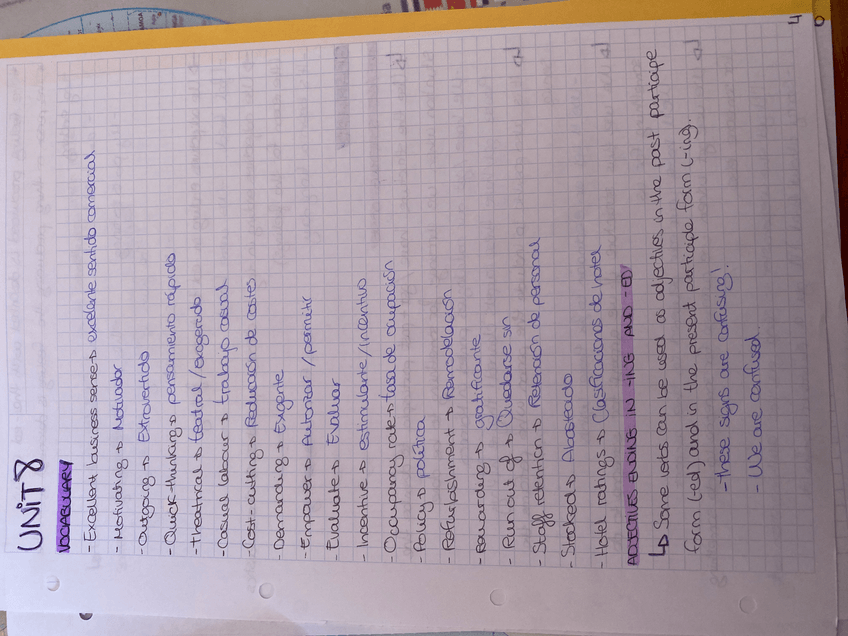 UNIT 8
VOCABULARY
- Excellent business sense → excelente sentido comercial
- Motivating → Motivador
- Outgoing → Extrovertido
- Quick-thinking → pensamiento rápido
- Theatrical → teatral / exagerado
- Casual labour → trabajo casual
- Cost-cutting → Reducación de costes
- Demanding → Exigente
- Empower → Autorizar / permitir
- Evaluate → Evaluar
- Incentive → estimulante / incentivo
- Occupancy rate → tasa de ocupación
- Policy → política
- Refurbishment → Remodelación
- Rewarding → gratificante
- Run out of → Quedarse sin
- Staff retention → Retención de personal
- Stocked → Abastecido
- Hotel ratings → Clasificaciones de hotel
ADJECTIVES ENDING IN -ING AND -ED
↳ Some verbs can be used as adjectives in the past participe
form (-ed) and in the present participle form (-ing).
- These signs are confusing!
- We are confused.